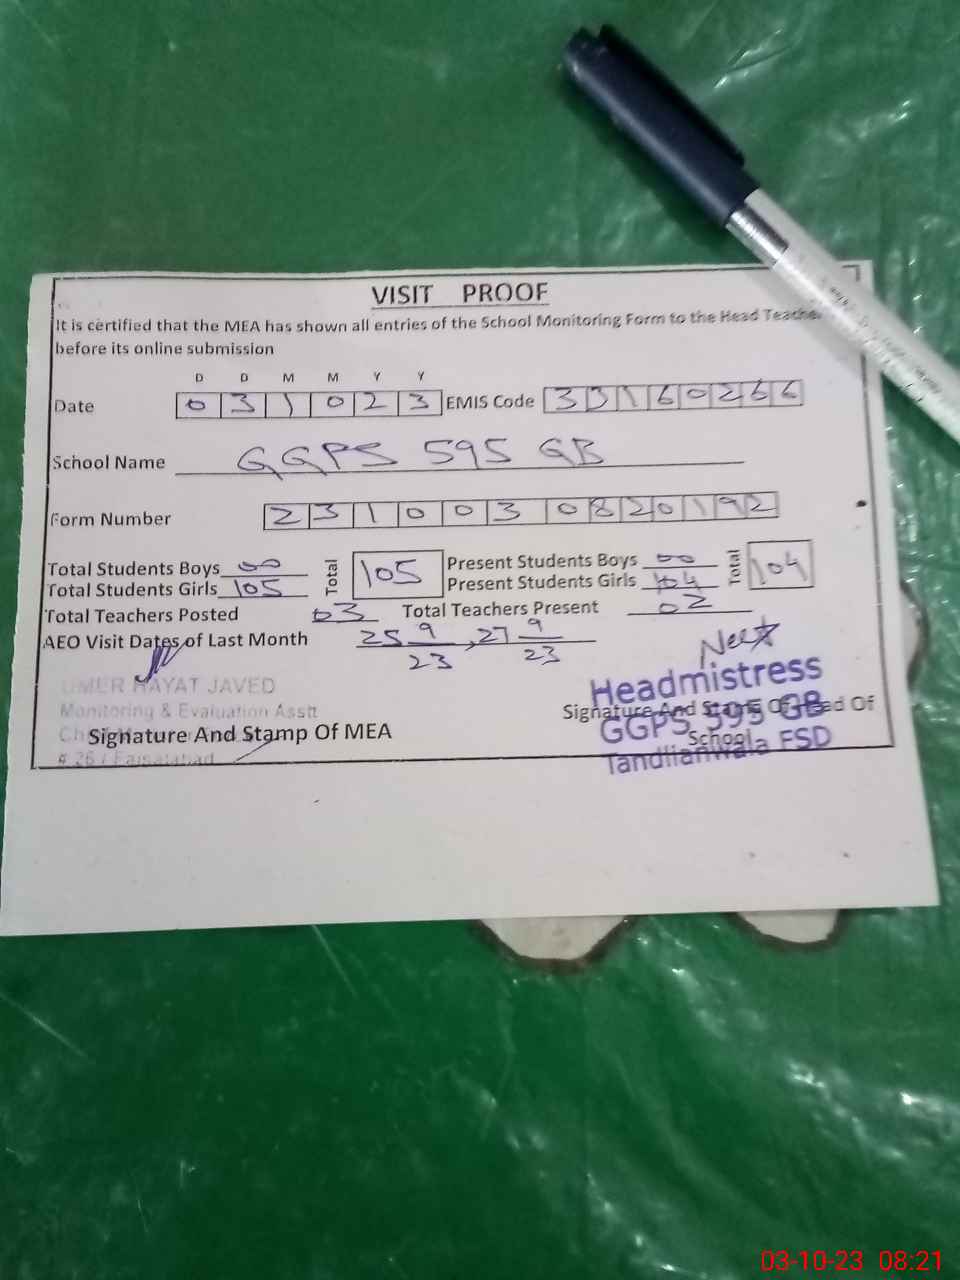 VISIT PROOF
It is certified that the MEA has shown all entries of the School Monitoring Form to the Head Teacher
before its online submission
D D M M Y Y
Date 0 3 1 0 2 3 EMIS Code 3 3 1 6 0 2 6 6
School Name GGPS 595 GB
Form Number 2 3 1 0 0 3 0 8 2 0 1 9 2
Total Students Boys 00 Total 105 Present Students Boys 00 Total 104
Total Students Girls 105 Present Students Girls 104
Total Teachers Posted 03 Total Teachers Present 02
AEO Visit Dates of Last Month 25 9/23, 27 9/23
UMER HAYAT JAVED
Monitoring & Evaluation Asstt
Signature And Stamp Of MEA
# 26 / Faisalabad
Headmistress
Signature And Stamp Of Head Of
GGPS 595 GB
School
Tandlianwala FSD
03-10-23 08:21